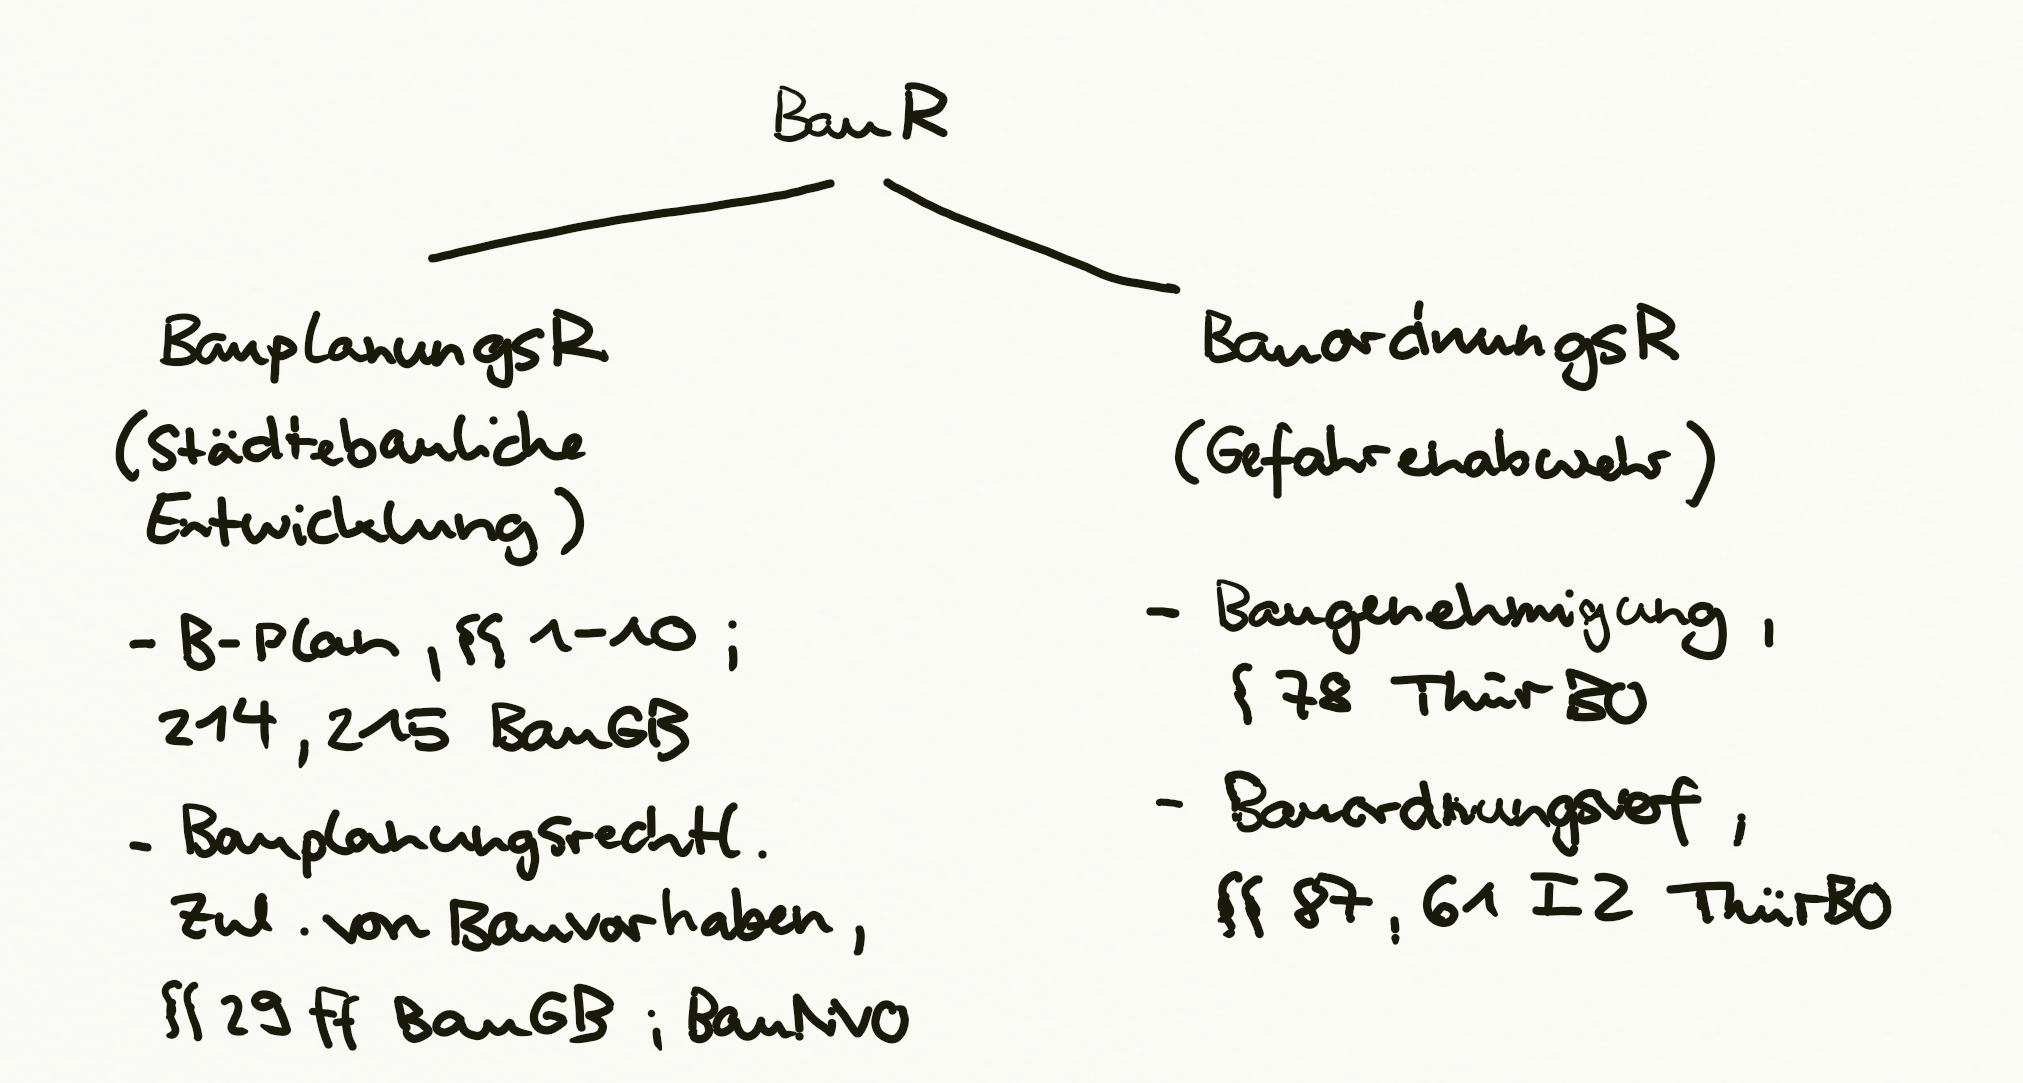 BauR
BauplanungsR
(Städtebauliche
Entwicklung)
- B-Plan, §§ 1-10;
214, 215 BauGB
- Bauplanungsrechtl.
Zul. von Bauvorhaben,
§§ 29 ff BauGB; BauNVO
BauordnungsR
(Gefahrenabwehr)
- Baugenehmigung,
§ 78 ThürBO
- Bauordnungsverf,
§§ 87, 61 I 2 ThürBO